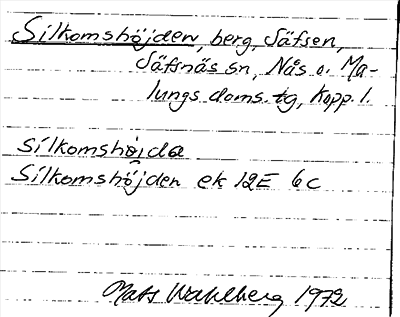 Silkomshöjden, berg, Säfsen,
Säfsnäs sn, Nås o. Ma-
lungs doms. tg, Kopp. l.
silkomshöjda
Silkomshöjden ek 12E 6c
Mats Wahlberg 1972